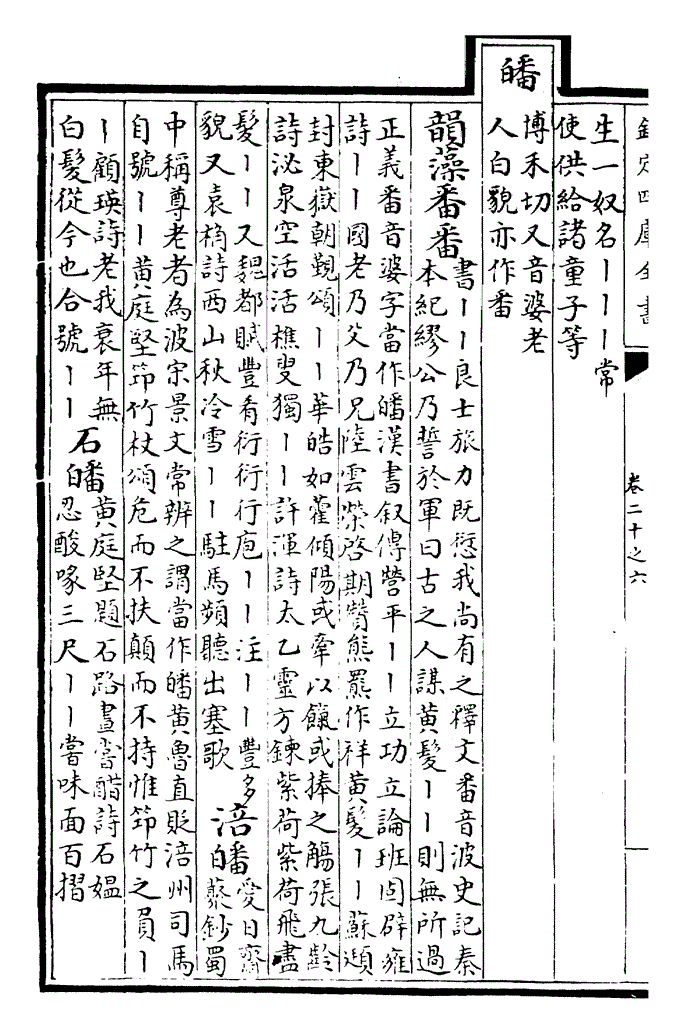 欽定四庫全書
卷二十之六
生一奴名丨丨丨常
使供給諸童子等
皤
博禾切又音婆老
人白貌亦作番
韻藻番番
書丨丨良士旅力既愆我尚有之釋文番音波史記秦
本紀繆公乃誓於軍曰古之人謀黃髮丨丨則無所過
正義番音婆字當作皤漢書叙傳營平丨丨立功立論班固辟雍
詩丨丨國老乃父乃兄陸雲榮啓期贊熊羆作祥黃髮丨丨蘇頲
封東嶽朝覲頌丨丨華皓如藿傾陽或牽以餼或捧之觴張九齡
詩泌泉空活活樵叟獨丨丨許渾詩太乙靈方鍊紫荷紫荷飛盡
髮丨丨又魏都賦豐肴衍衍行庖丨丨注丨丨豐多
貌又袁桷詩西山秋冷雪丨丨駐馬頻聽出塞歌
涪皤
愛日齋
藂鈔蜀
中稱尊老者為波宋景文常辨之謂當作皤黃魯直貶涪州司馬
自號丨丨黃庭堅筇竹杖頌危而不扶顛而不持惟筇竹之負丨
丨顧瑛詩老我衰年無
白髮從今也合號丨丨
石皤
黃庭堅題石路畫嘗醋詩石媼
忍酸喙三尺丨丨嘗味面百摺